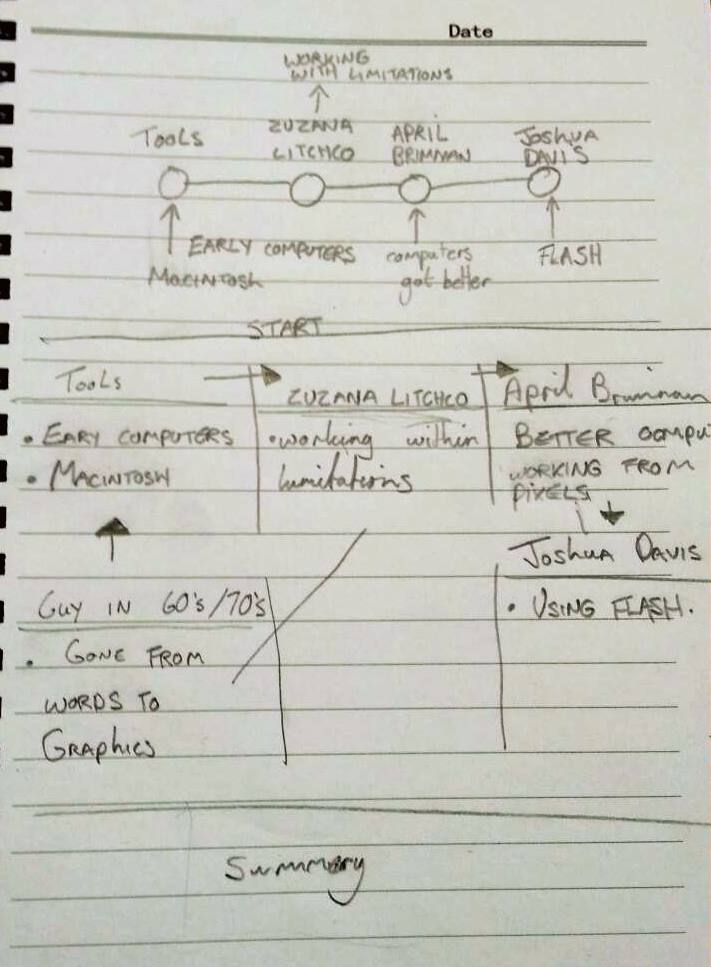 Date
WORKING
WITH LIMITATIONS
TOOLS
ZUZANA
LITCHCO
APRIL
BRIMMAN
JOSHUA
DAVIS
EARLY COMPUTERS
MACINTOSH
computers
got better
FLASH
START
TOOLS
ZUZANA LITCHCO
April Brimman
• EARY COMPUTERS
• MACINTOSH
• working within
limitations
BETTER COMPU
WORKING FROM
PIXELS
Joshua Davis
• USING FLASH.
GUY IN 60's/70's
• GONE FROM
WORDS TO
GRAPHICS
Summary